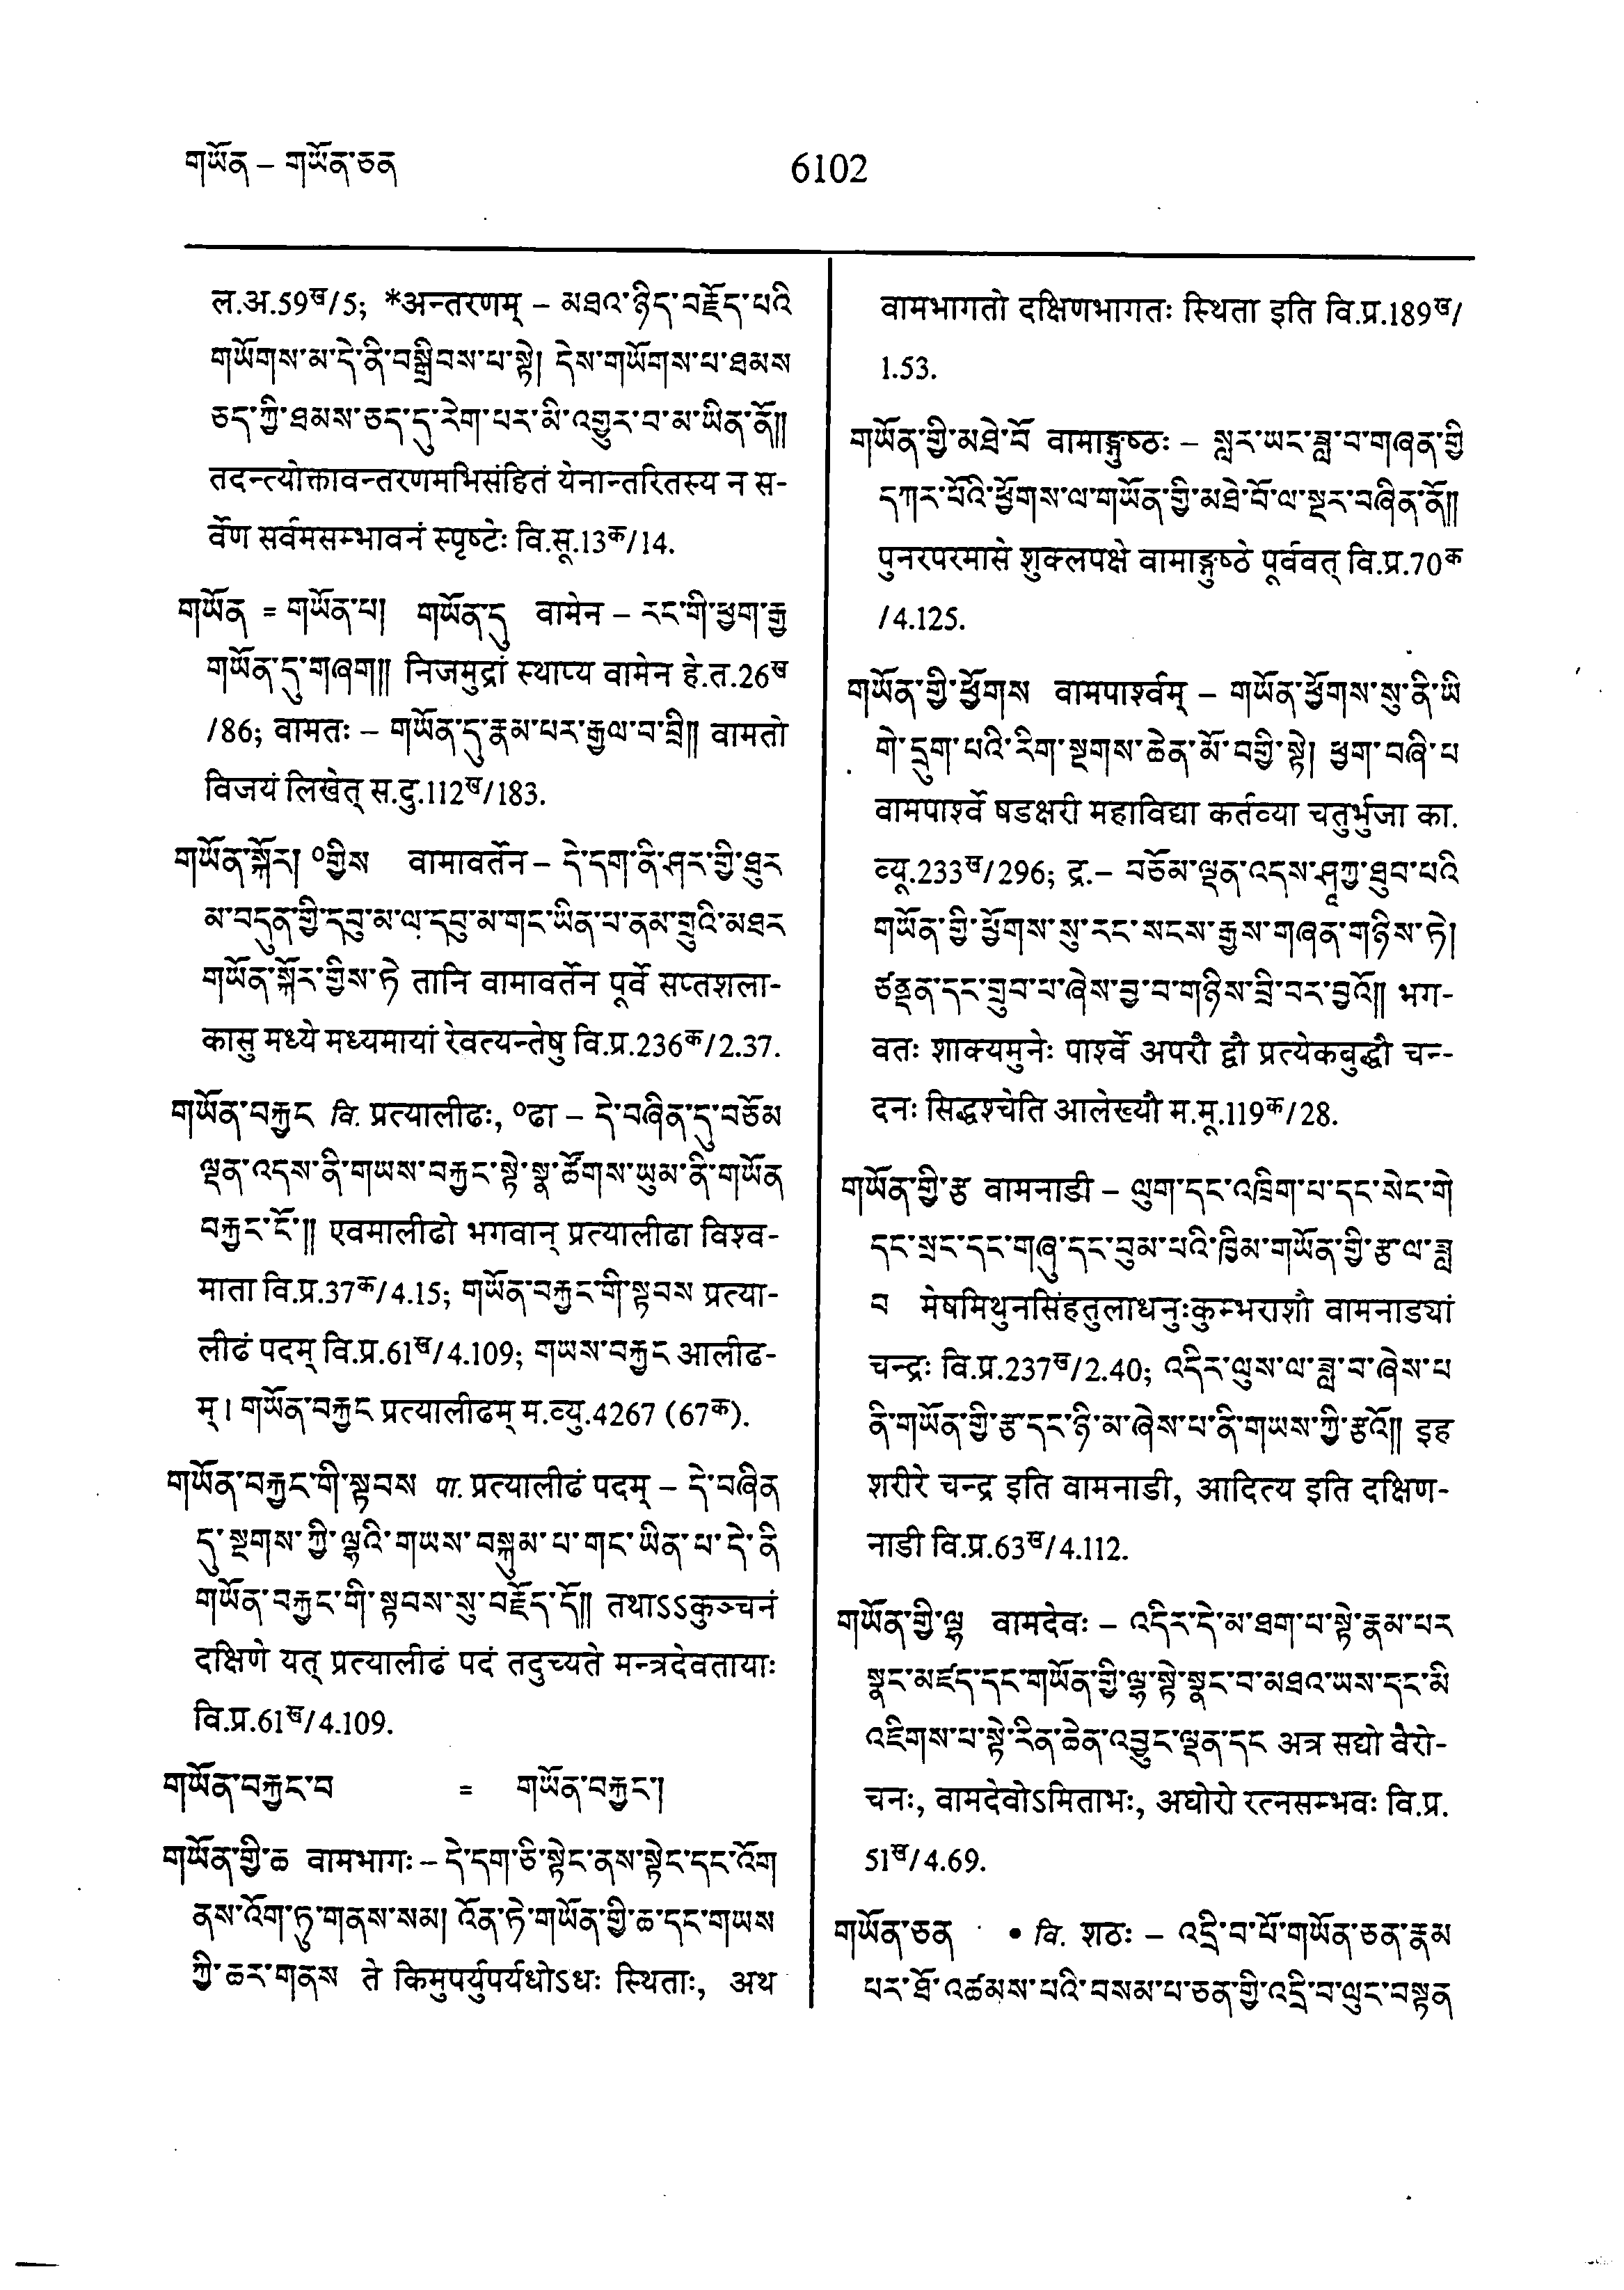 གཡོན – གཡོན་ཅན
6102
ल.अ.59ख/5; *अन्तरणम् – མཐའ་ཉིད་བརྗོད་པའི
གཡོགས་མ་དེ་ནི་བསྒྲིབས་པ་སྟེ། དེས་གཡོགས་པ་ཐམས
ཅད་ཀྱི་ཐམས་ཅད་དུ་རེག་པར་མི་འགྱུར་བ་མ་ཡིན་ནོ༎
तदन्त्योक्तावन्तरणमभिसंहितं येनान्तरितस्य न स-
र्वेण सर्वमसम्भावनं स्पृष्टेः वि.सू.13क/14.
གཡོན = གཡོན་པ། གཡོན་དུ वामेन – རང་གི་ཕྱག་རྒྱ
གཡོན་དུ་གཞག༎ निजमुद्रां स्थाप्य वामेन हे.त.26ख
/86; वामतः – གཡོན་དུ་རྣམ་པར་རྒྱལ་བ་བྲི༎ वामतो
विजयं लिखेत् स.दु.112ख/183.
གཡོན་སྐོར། ०གྱིས वामावर्तेन – དེ་དག་ནི་ཤར་གྱི་ཐུར
མ་བདུན་གྱི་དབུ་མ་ལ་དབུ་མ་གང་ཡིན་པ་ནམ་གྲུའི་མཐར
གཡོན་སྐོར་གྱིས་ཏེ तानि वामावर्तेन पूर्वे सप्तशला-
कासु मध्ये मध्यमायां रेवत्यन्तेषु वि.प्र.236क/2.37.
གཡོན་བརྐྱང वि. प्रत्यालीढः, ०ढा – དེ་བཞིན་དུ་བཅོམ
ལྡན་འདས་ནི་གཡས་བརྐྱང་སྟེ་སྣ་ཚོགས་ཡུམ་ནི་གཡོན
བརྐྱང་ངོ་༎ एवमालीढो भगवान् प्रत्यालीढा विश्व-
माता वि.प्र.37क/4.15; གཡོན་བརྐྱང་གི་སྟབས प्रत्या-
लीढं पदम् वि.प्र.61ख/4.109; གཡས་བརྐྱང आलीढ-
म्। གཡོན་བརྐྱང प्रत्यालीढम् म.व्यु.4267 (67क).
གཡོན་བརྐྱང་གི་སྟབས पा. प्रत्यालीढं पदम् – དེ་བཞིན
དུ་སྔགས་ཀྱི་ལྷའི་གཡས་བསྐུམ་པ་གང་ཡིན་པ་དེ་ནི
གཡོན་བརྐྱང་གི་སྟབས་སུ་བརྗོད་དོ༎ तथाऽऽकुञ्चनं
दक्षिणे यत् प्रत्यालीढं पदं तदुच्यते मन्त्रदेवतायाः
वि.प्र.61ख/4.109.
གཡོན་བརྐྱང་བ = གཡོན་བརྐྱང་།
གཡོན་གྱི་ཆ वामभागः – དེ་དག་ཅི་སྟེང་ནས་སྟེང་དང་འོག
ནས་འོག་ཏུ་གནས་སམ། འོན་ཏེ་གཡོན་གྱི་ཆ་དང་གཡས
ཀྱི་ཆར་གནས ते किमुपर्युपर्यधोऽधः स्थिताः, अथ
वामभागतो दक्षिणभागतः स्थिता इति वि.प्र.189ख/
1.53.
གཡོན་གྱི་མཐེ་བོ वामाङ्गुष्ठः – སླར་ཡང་ཟླ་བ་གཞན་གྱི
དཀར་པོའི་ཕྱོགས་ལ་གཡོན་གྱི་མཐེ་བོ་ལ་སྔར་བཞིན་ནོ༎
पुनरपरमासे शुक्लपक्षे वामाङ्गुष्ठे पूर्ववत् वि.प्र.70क
/4.125.
གཡོན་གྱི་ཕྱོགས वामपार्श्वम् – གཡོན་ཕྱོགས་སུ་ནི་ཡི
གེ་དྲུག་པའི་རིག་སྔགས་ཆེན་མོ་བགྱི་སྟེ། ཕྱག་བཞི་པ
वामपार्श्वे षडक्षरी महाविद्या कर्तव्या चतुर्भुजा का.
व्यू.233ख/296; द्र.– བཅོམ་ལྡན་འདས་ཤཱཀྱ་ཐུབ་པའི
གཡོན་གྱི་ཕྱོགས་སུ་རང་སངས་རྒྱས་གཞན་གཉིས་ཏེ།
ཙནྡན་དང་གྲུབ་པ་ཞེས་བྱ་བ་གཉིས་བྲི་བར་བྱའོ༎ भग-
वतः शाक्यमुनेः पार्श्वे अपरौ द्वौ प्रत्येकबुद्धौ चन्-
दनः सिद्धश्चेति आलेख्यौ म.मू.119क/28.
གཡོན་གྱི་རྩ वामनाडी – ལུག་དང་འཁྲིག་པ་དང་སེང་གེ
དང་སྲང་དང་གཞུ་དང་བུམ་པའི་ཁྱིམ་གཡོན་གྱི་རྩ་ལ་ཟླ
བ मेषमिथुनसिंहतुलाधनुःकुम्भराशौ वामनाड्यां
चन्द्रः वि.प्र.237ख/2.40; འདིར་ལུས་ལ་ཟླ་བ་ཞེས་པ
ནི་གཡོན་གྱི་རྩ་དང་ཉི་མ་ཞེས་པ་ནི་གཡས་ཀྱི་རྩའོ༎ इह
शरीरे चन्द्र इति वामनाडी, आदित्य इति दक्षिण-
नाडी वि.प्र.63ख/4.112.
གཡོན་གྱི་ལྷ वामदेवः – འདིར་དེ་མ་ཐག་པ་སྟེ་རྣམ་པར
སྣང་མཛད་དང་གཡོན་གྱི་ལྷ་སྟེ་སྣང་བ་མཐའ་ཡས་དང་མི
འཇིགས་པ་སྟེ་རིན་ཆེན་འབྱུང་ལྡན་དང अत्र सद्यो वैरो-
चनः, वामदेवोऽमिताभः, अघोरो रत्नसम्भवः वि.प्र.
51ख/4.69.
གཡོན་ཅན • वि. शठः – འདྲི་བ་པོ་གཡོན་ཅན་རྣམ
པར་ཐོ་འཚམས་པའི་བསམ་པ་ཅན་གྱི་འདྲི་བ་ལུང་བསྟན